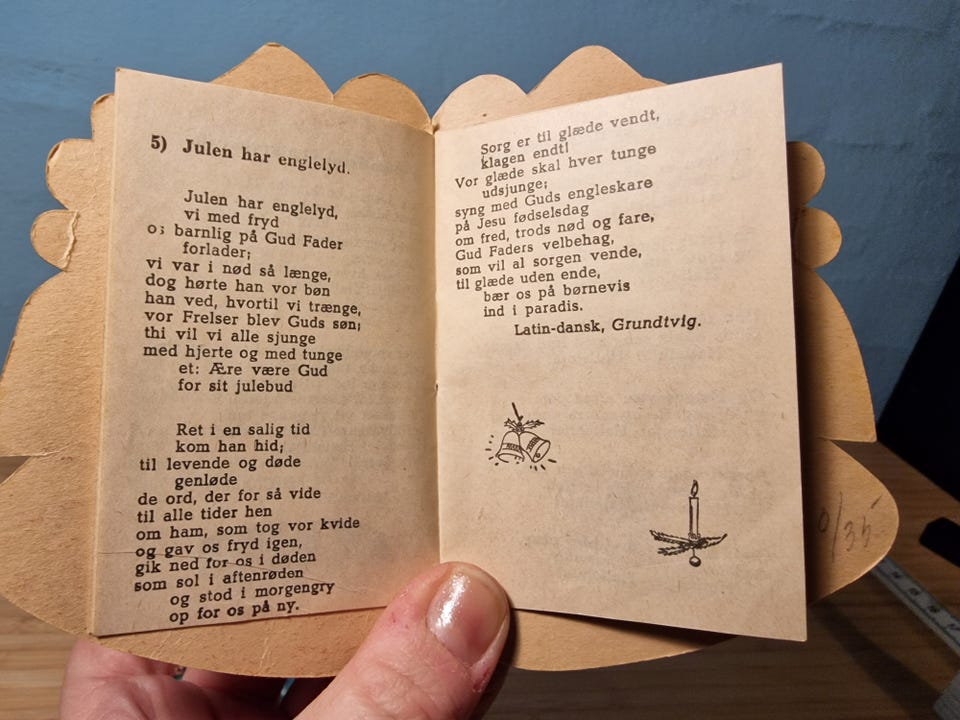 5) Julen har englelyd.
Julen har englelyd,
vi med fryd
os barnlig på Gud Fader
forlader;
vi var i nød så længe,
dog hørte han vor bøn
han ved, hvortil vi trænge,
vor Frelser blev Guds søn;
thi vil vi alle sjunge
med hjerte og med tunge
et: Ære være Gud
for sit julebud
Ret i en salig tid
kom han hid;
til levende og døde
genløde
de ord, der for så vide
til alle tider hen
om ham, som tog vor kvide
og gav os fryd igen,
gik ned for os i døden
som sol i aftenrøden
og stod i morgengry
op for os på ny.
Sorg er til glæde vendt,
klagen endt!
Vor glæde skal hver tunge
udsjunge;
syng med Guds engleskare
på Jesu fødselsdag
om fred, trods nød og fare,
Gud Faders velbehag,
som vil al sorgen vende,
til glæde uden ende,
bær os på børnevis
ind i paradis.
Latin-dansk, Grundtvig.